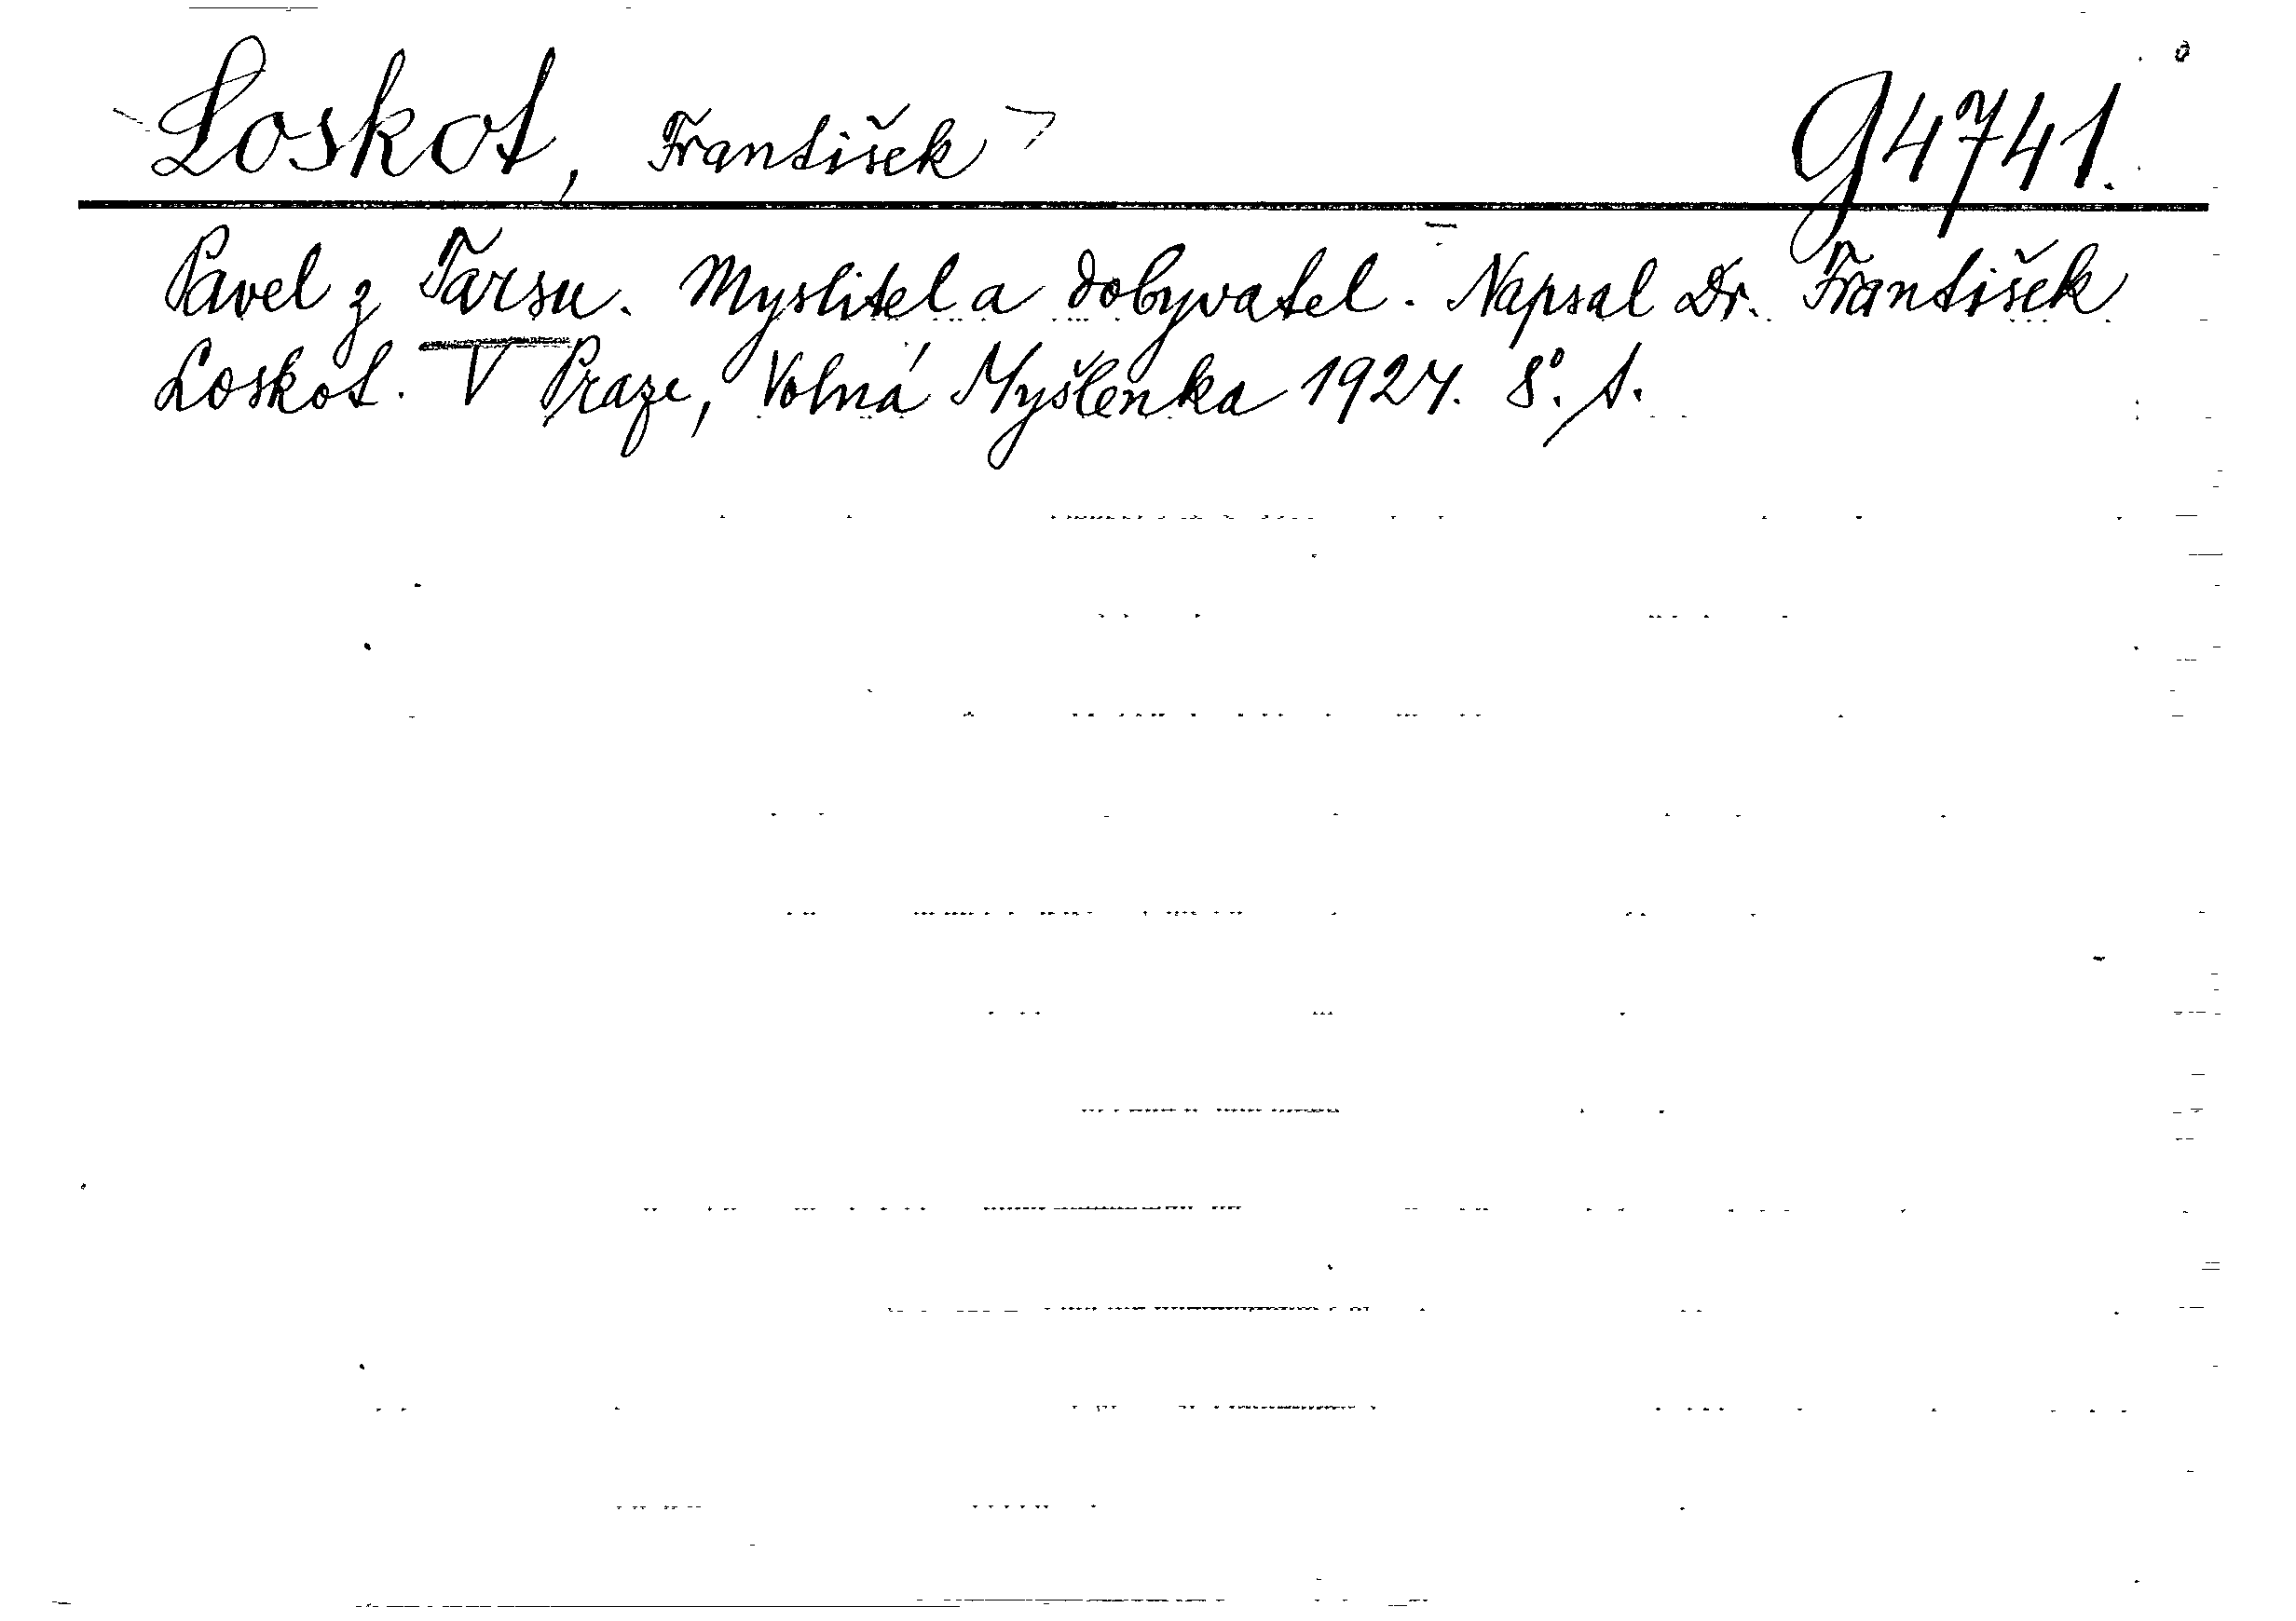 Loskot, František G4741.
Pavel z Tarsu. Myslitel a dobyvatel. Napsal Dr. František
Loskot. V Praze, Volná Myšlenka 1924. 8°. 1.